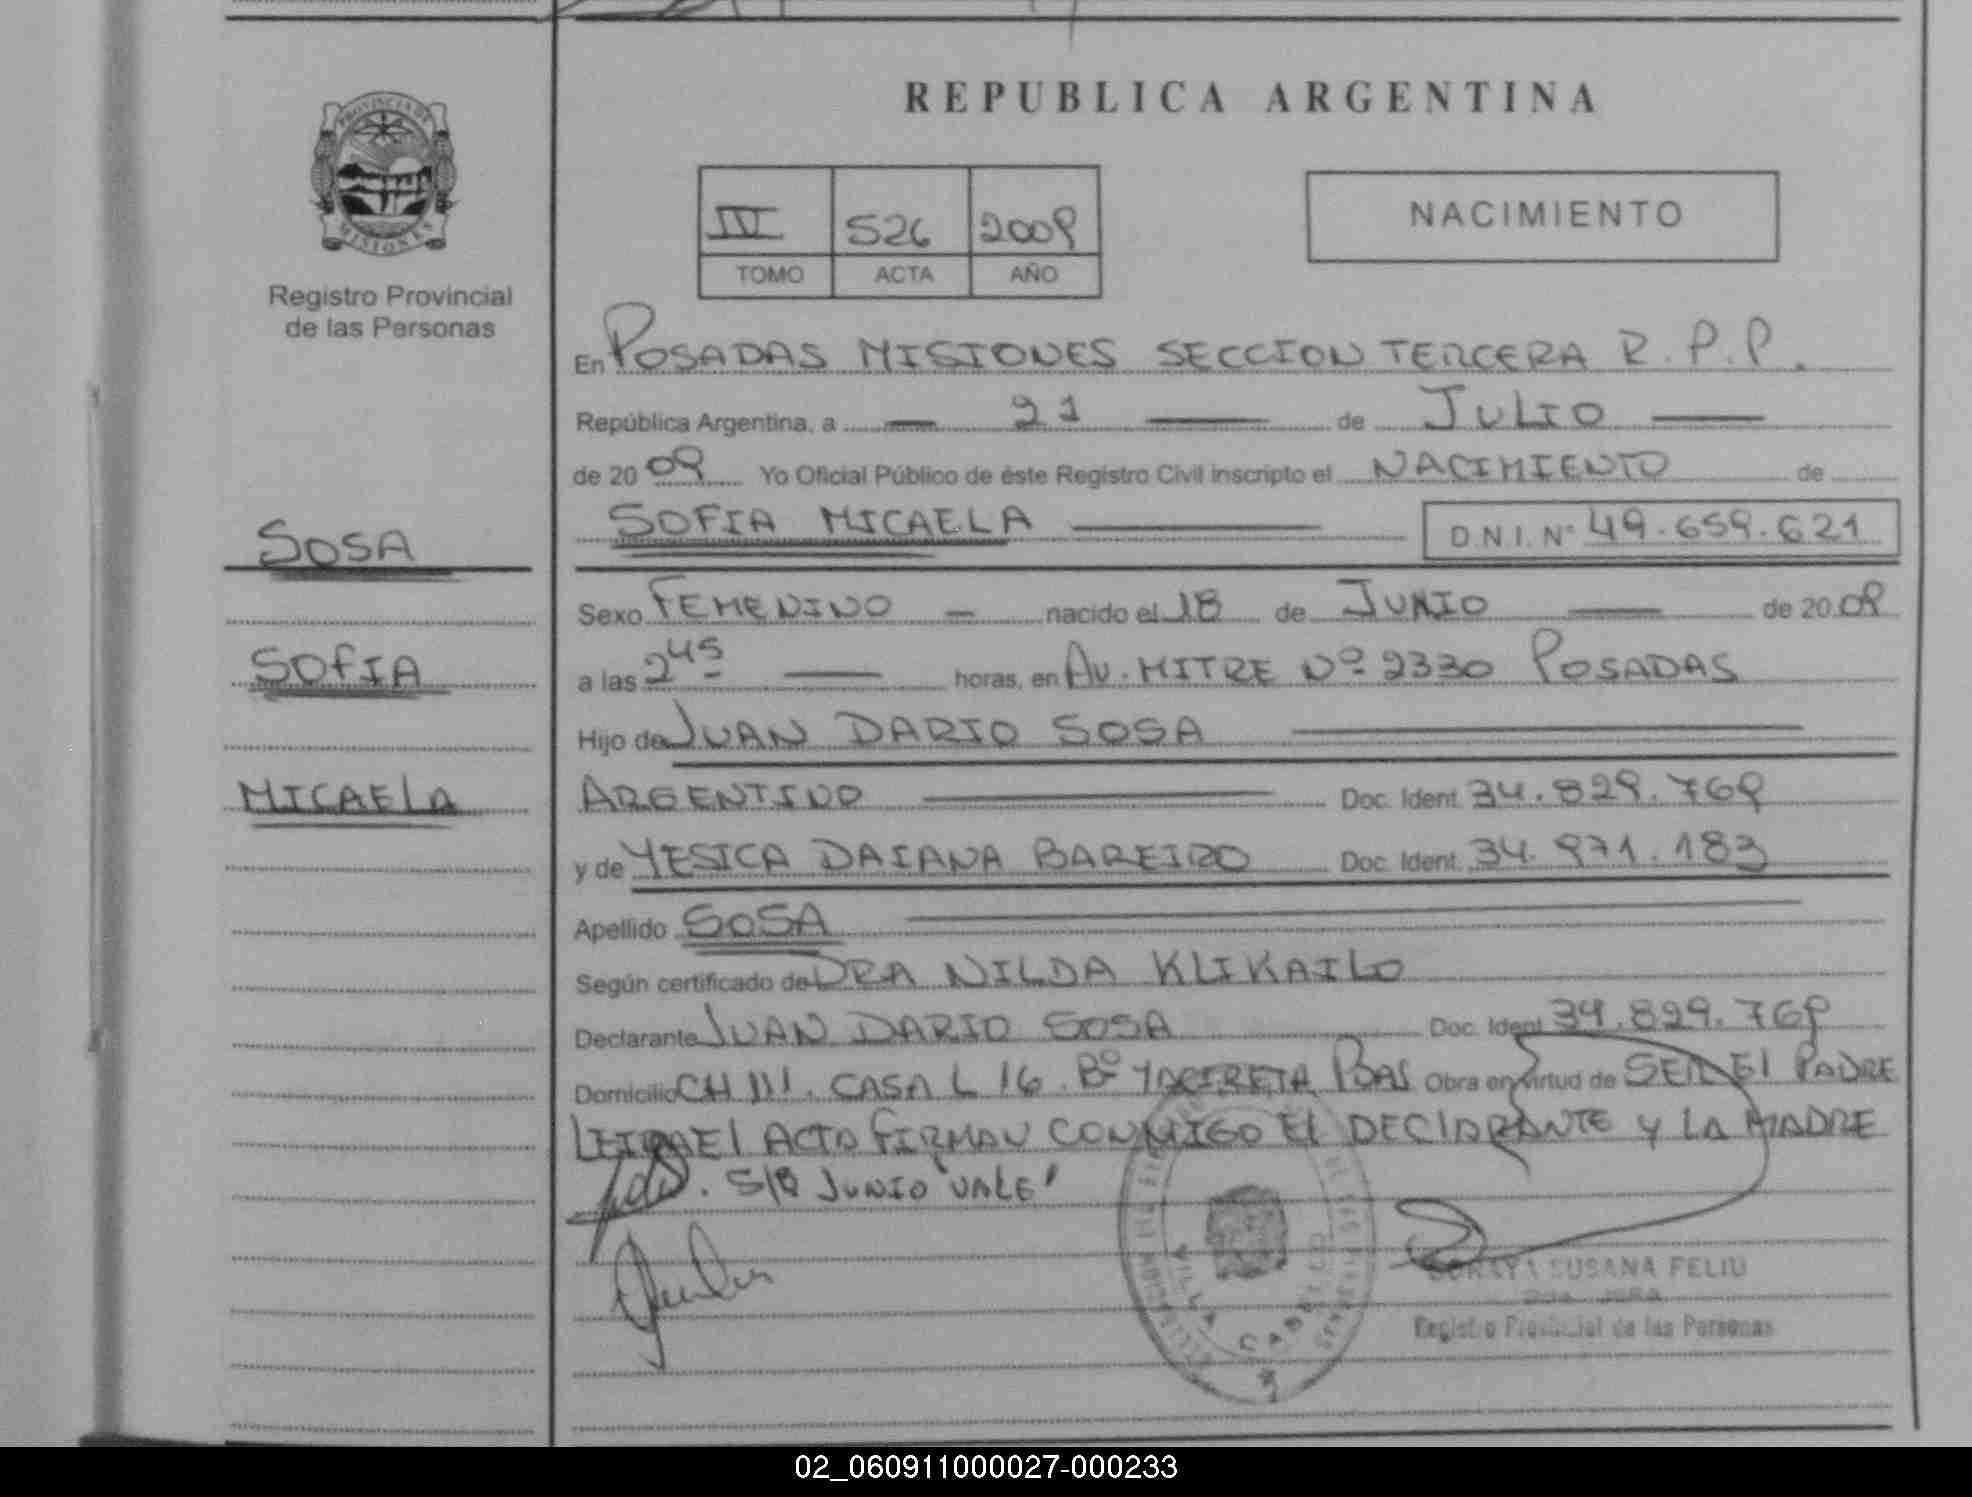 REPUBLICA ARGENTINA
PROVINCIA DE
MISIONES
Registro Provincial
de las Personas
IV 526 2009
TOMO ACTA AÑO
NACIMIENTO
En POSADAS MISIONES SECCION TERCERA R.P.P.
República Argentina, a 21 de JULIO
de 2009 Yo Oficial Público de éste Registro Civil inscripto el NACIMIENTO de
SOFIA MICAELA D.N.I. Nº 49.659.621
SOSA
SOFIA
MICAELA
Sexo FEMENINO nacido el 18 de JUNIO de 2009
a las 2 45 horas, en AV. MITRE Nº 2330 POSADAS
Hijo de JUAN DARIO SOSA
ARGENTINO Doc. Ident. 34.829.769
y de YESICA DAIANA BAREIRO Doc. Ident. 34.971.183
Apellido SOSA
Según certificado de DRA NILDA KLIKAILO
Declarante JUAN DARIO SOSA Doc. Ident. 34.829.769
Domicilio CH 111. CASA L 16. Bº YACIRETA POAS Obra en virtud de SER El PADRE
LEIDA El ACTA FIRMAN CONMIGO El DECLARANTE Y LA MADRE
S/B JUNIO "VALE"
VILLA CABELLO
SORAYA SUSANA FELIU
Registro Provincial de las Personas
02_060911000027-000233